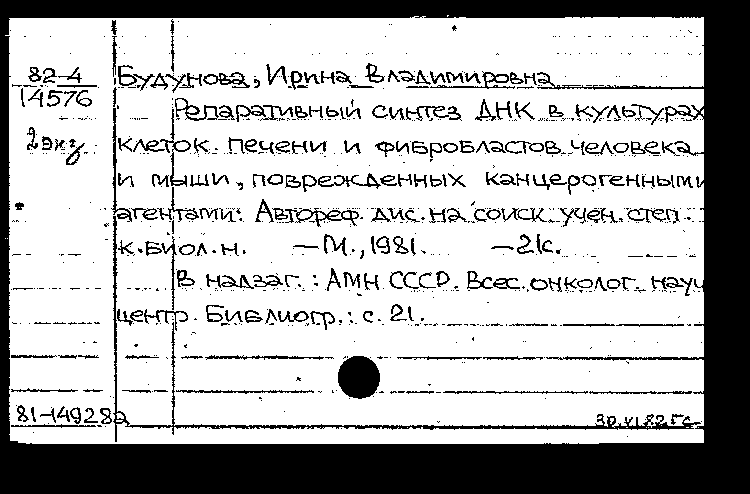 82-4
14576
2 экз
Будунова, Ирина Владимировна
Репаративный синтез ДНК в культурах
клеток печени и фибробластов человека
и мыши, поврежденных канцерогенными
агентами: Автореф. дис. на соиск. учен. степ.
к. биол. н. — М., 1981. — 21с.
В надзаг.: АМН СССР. Всес. онколог. науч
центр. Библиогр.: с. 21.
81-14928а
30.VI.82